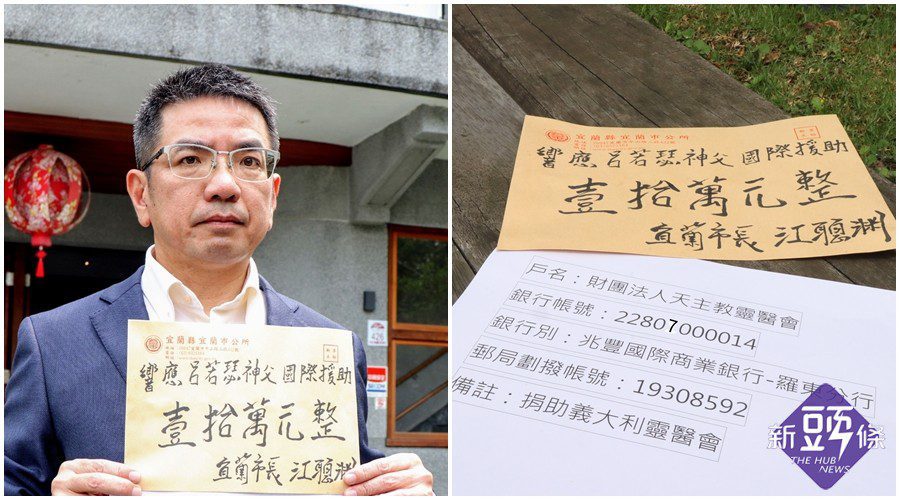 宜蘭縣宜蘭市公所
響應呂若瑟神父國際援助
壹拾萬元整
宜蘭市長 江聰淵
426
宜蘭縣宜蘭市公所
響應呂若瑟神父 國際援助
壹拾萬元整
宜蘭市長 江聰淵
戶名：財團法人天主教靈醫會
銀行帳號：22807000014
銀行別：兆豐國際商業銀行-羅東分行
郵局劃撥帳號：19308592
備註：捐助義大利靈醫會
新頭條
THE HUB
NEWS